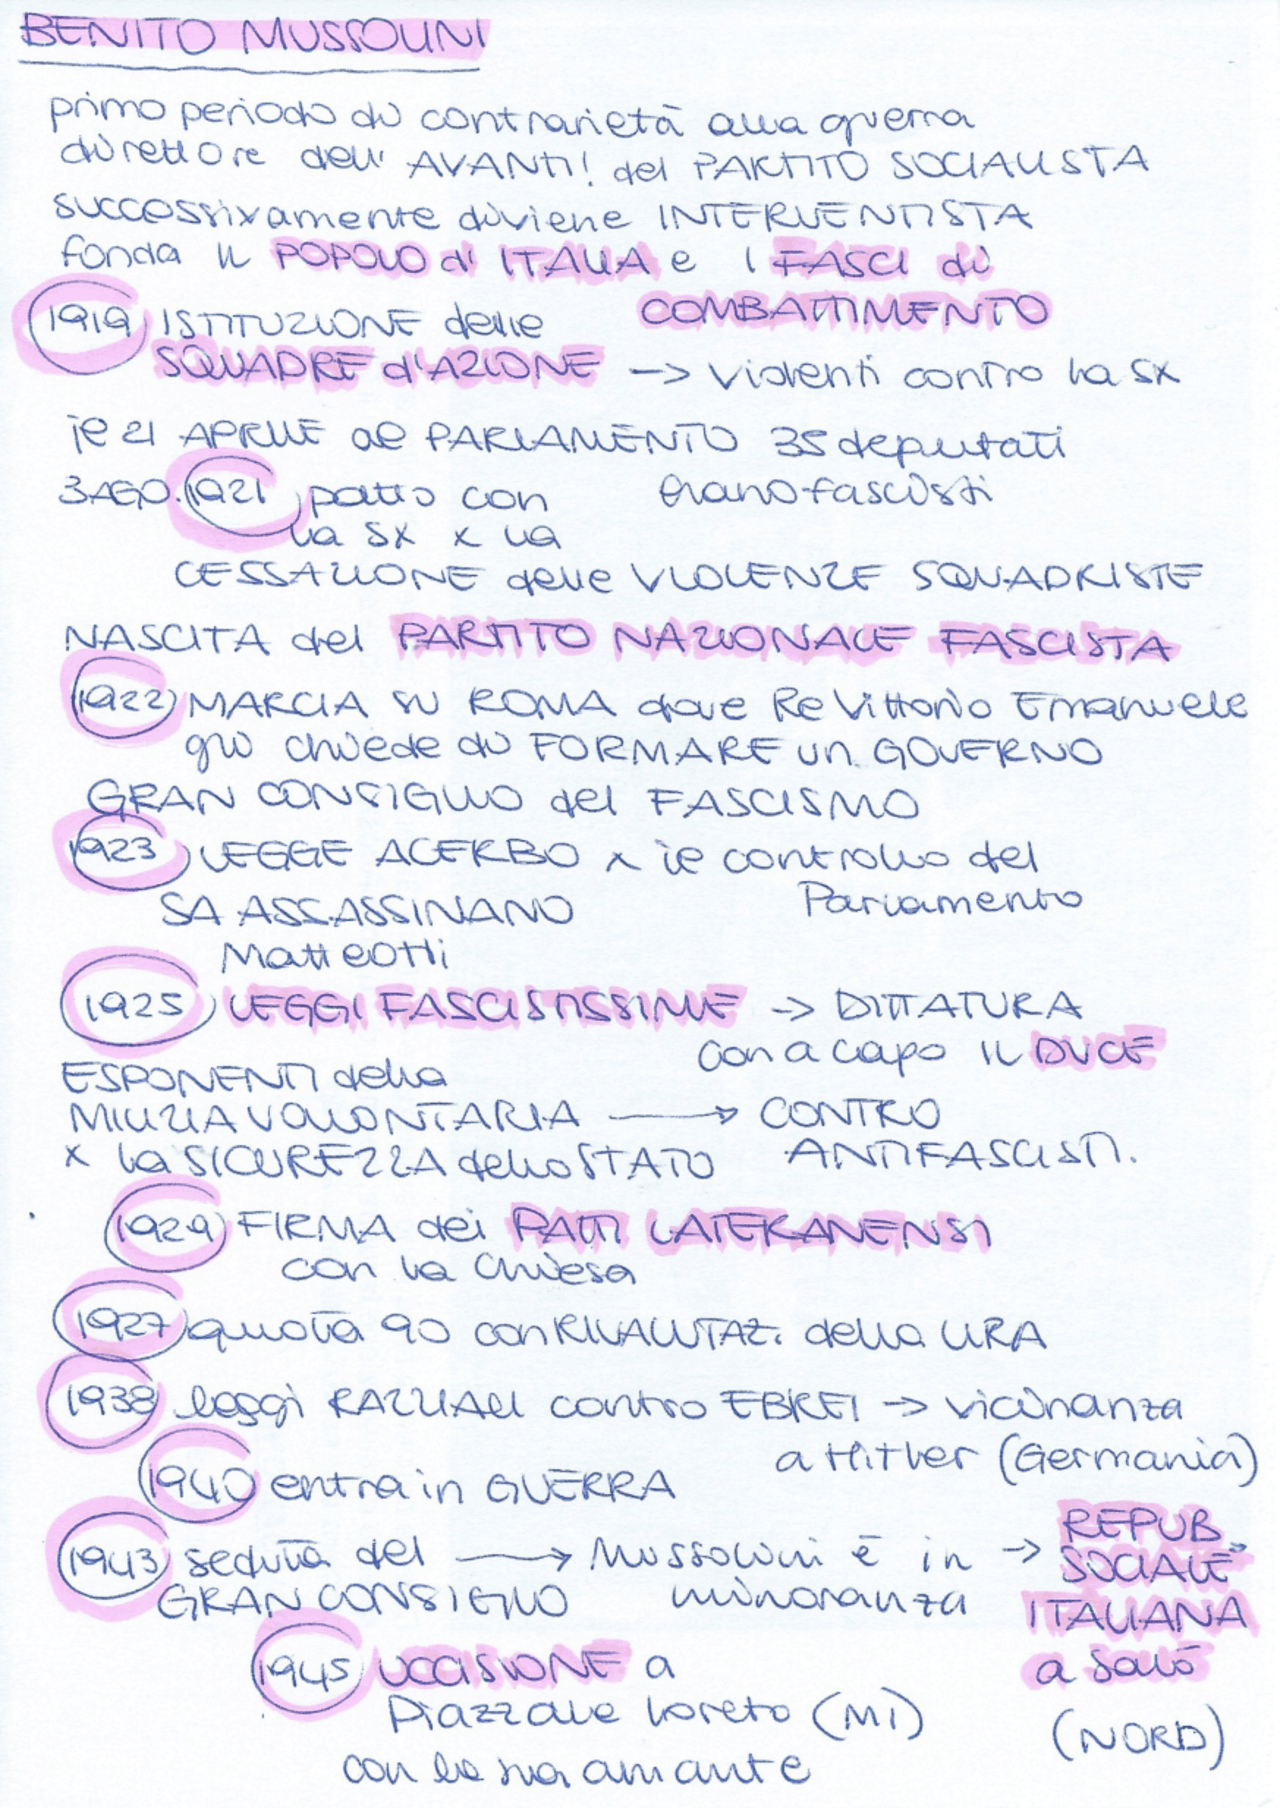 BENITO MUSSOLINI
primo periodo di contrarietà alla guerra
direttore dell' AVANTI! del PARTITO SOCIALISTA
successivamente diviene INTERVENTISTA
fonda il POPOLO d'ITALIA e i FASCI di
COMBATTIMENTO
1919 ISTITUZIONE delle
SQUADRE d'AZIONE -> violenti contro la sx
il 21 APRILE al PARLAMENTO 35 deputati
erano fascisti
3 AGO. 1921 patto con
la sx x la
CESSAZIONE delle VIOLENZE SQUADRISTE
NASCITA del PARTITO NAZIONALE FASCISTA
1922 MARCIA su ROMA dove Re Vittorio Emanuele
gli chiede di FORMARE un GOVERNO
GRAN CONSIGLIO del FASCISMO
1923 LEGGE ACERBO x il controllo del
Parlamento
SA ASSASSINANO
Matteotti
1925 LEGGI FASCISTISSIME -> DITTATURA
con a capo il DUCE
ESPONENTI della
MILIZIA VOLONTARIA -> CONTRO
x la SICUREZZA dello STATO ANTIFASCISTI.
1929 FIRMA dei PATTI LATERANENSI
con la Chiesa
1927 quota 90 con RIVALUTAZ. della LIRA
1938 leggi RAZZIALI contro EBREI -> vicinanza
a Hitler (Germania)
1940 entra in GUERRA
1943 seduta del -> Mussolini è in -> REPUB.
GRAN CONSIGLIO minoranza SOCIALE
ITALIANA
a Salò
(NORD)
1945 UCCISIONE a
Piazzale Loreto (MI)
con la sua amante